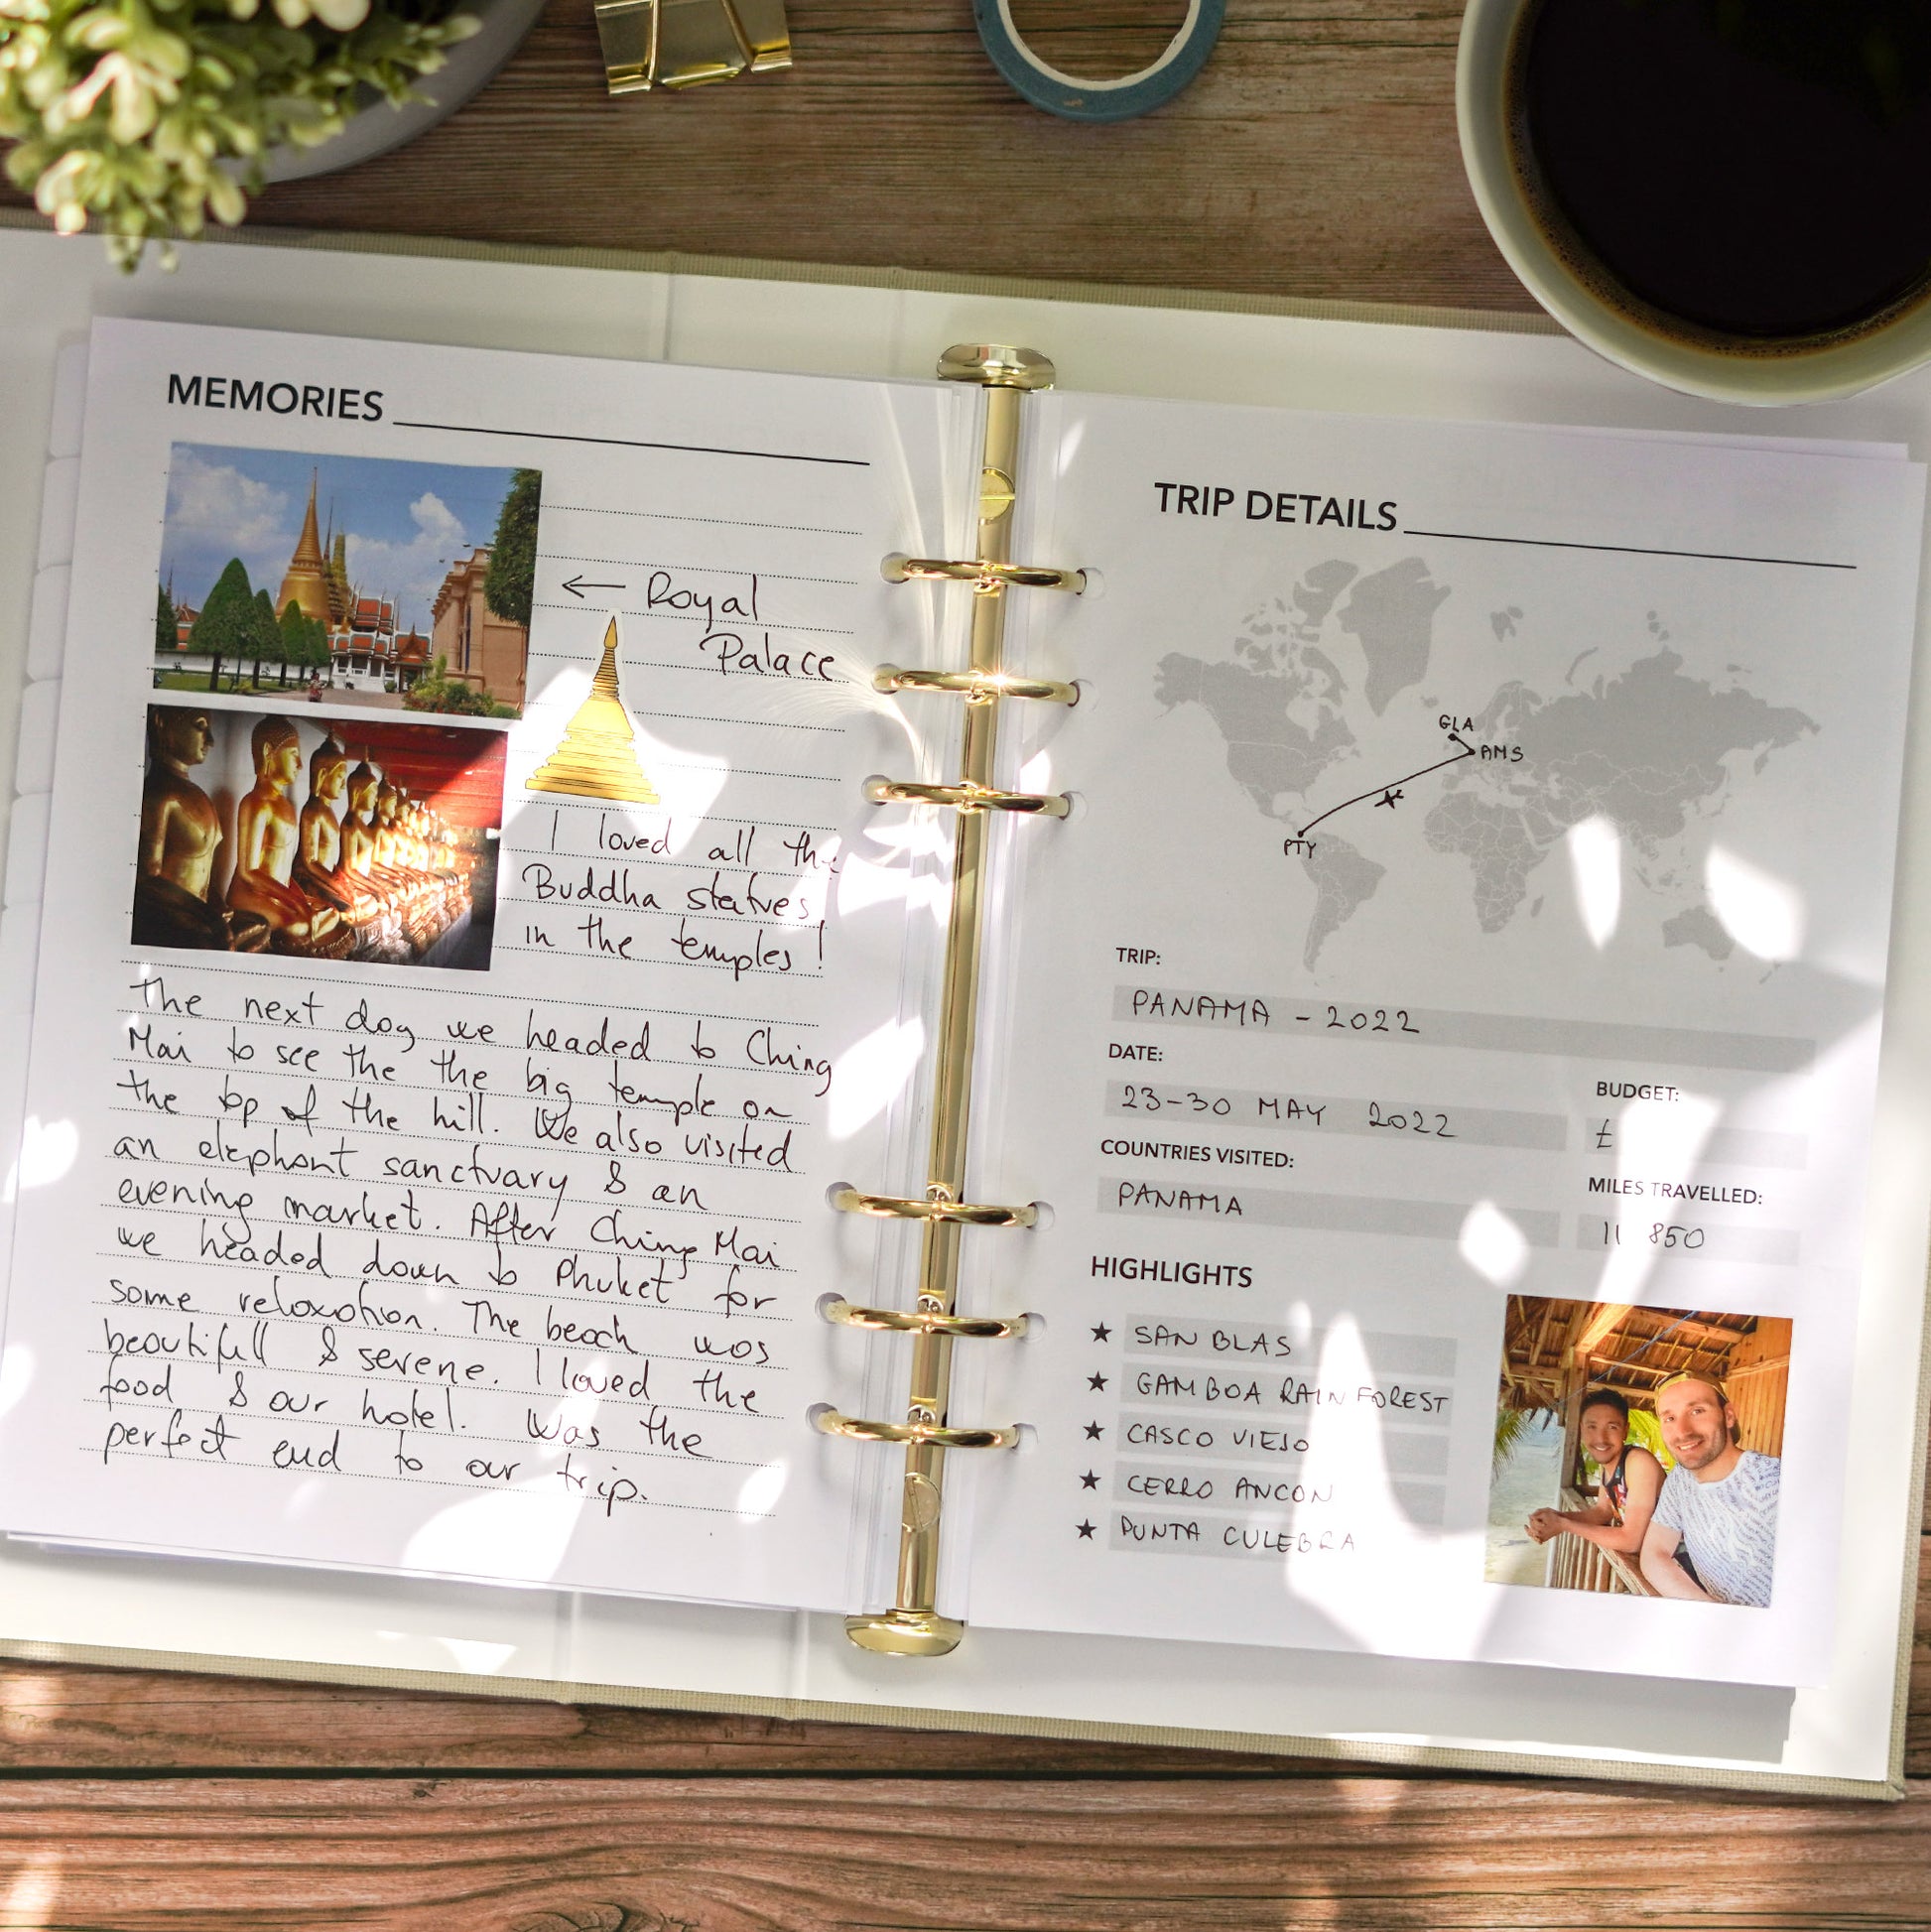 MEMORIES
← Royal
Palace
I loved all the
Buddha statues
in the temples!
The next day we headed to Ching
Mai to see the the big temple on
the top of the hill. We also visited
an elephant sanctuary & an
evening market. After Ching Mai
we headed down to Phuket for
some relaxation. The beach was
beautifull & serene. I loved the
food & our hotel. Was the
perfect end to our trip.
TRIP DETAILS
GLA
AMS
PTY
TRIP:
PANAMA - 2022
DATE:
23-30 MAY 2022
BUDGET:
£
COUNTRIES VISITED:
PANAMA
MILES TRAVELLED:
11 850
HIGHLIGHTS
★ SAN BLAS
★ GAMBOA RAIN FOREST
★ CASCO VIEJO
★ CERRO ANCON
★ PUNTA CULEBRA